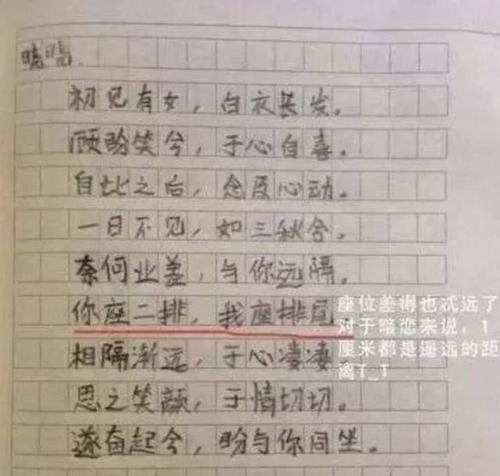 初见有女，白衣长发。
顾盼笑兮，于心自喜。
自此之后，念及心动。
一日不见，如三秋兮。
奈何业差，与你远隔。
你座二排，我座排尾
座位差得也忒远了
对于暗恋来说，1
厘米都是遥远的距
离T_T
相隔渐远，于心凄凄
思之笑颜，于情切切。
遂奋起兮，盼与你同坐。